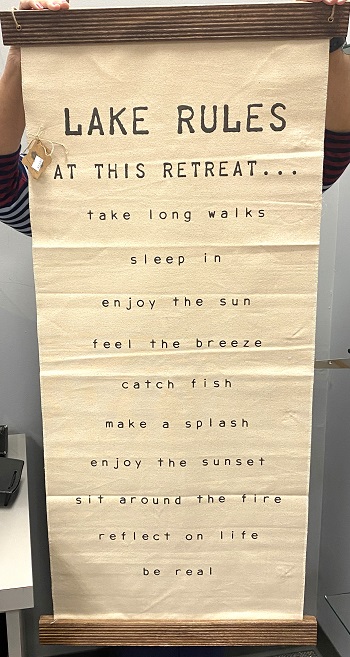 LAKE RULES
AT THIS RETREAT...
take long walks
sleep in
enjoy the sun
feel the breeze
catch fish
make a splash
enjoy the sunset
sit around the fire
reflect on life
be real